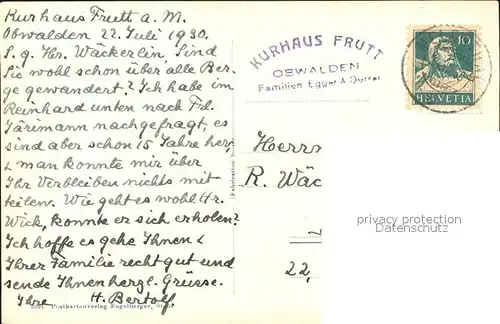 Kurhaus Frutt a. M.
Obwalden 22. Juli 1930.
S. g. Hr. Wäckerlin, Sind
Sie wohl schon über alle Ber-
ge gewandert? Ich habe im
Reinhard unten nach Frl.
Järimann nachgefragt, es
sind aber schon 15 Jahre her,
& man konnte mir über
Ihr Verbleiben nichts mit
teilen. Wie geht es wohl Hr.
Wick, konnte er sich erholen?
Ich hoffe es gehe Ihnen &
Ihrer Familie recht gut und
sende Ihnen herzl. Grüsse.
Ihre H. Bertolf
Postkartenverlag Engelberger,
KURHAUS FRUTT
OBWALDEN
Familien Egger & Durrer
10
HELVETIA
Herrn
R. Wäc
22,
privacy protection
Datenschutz